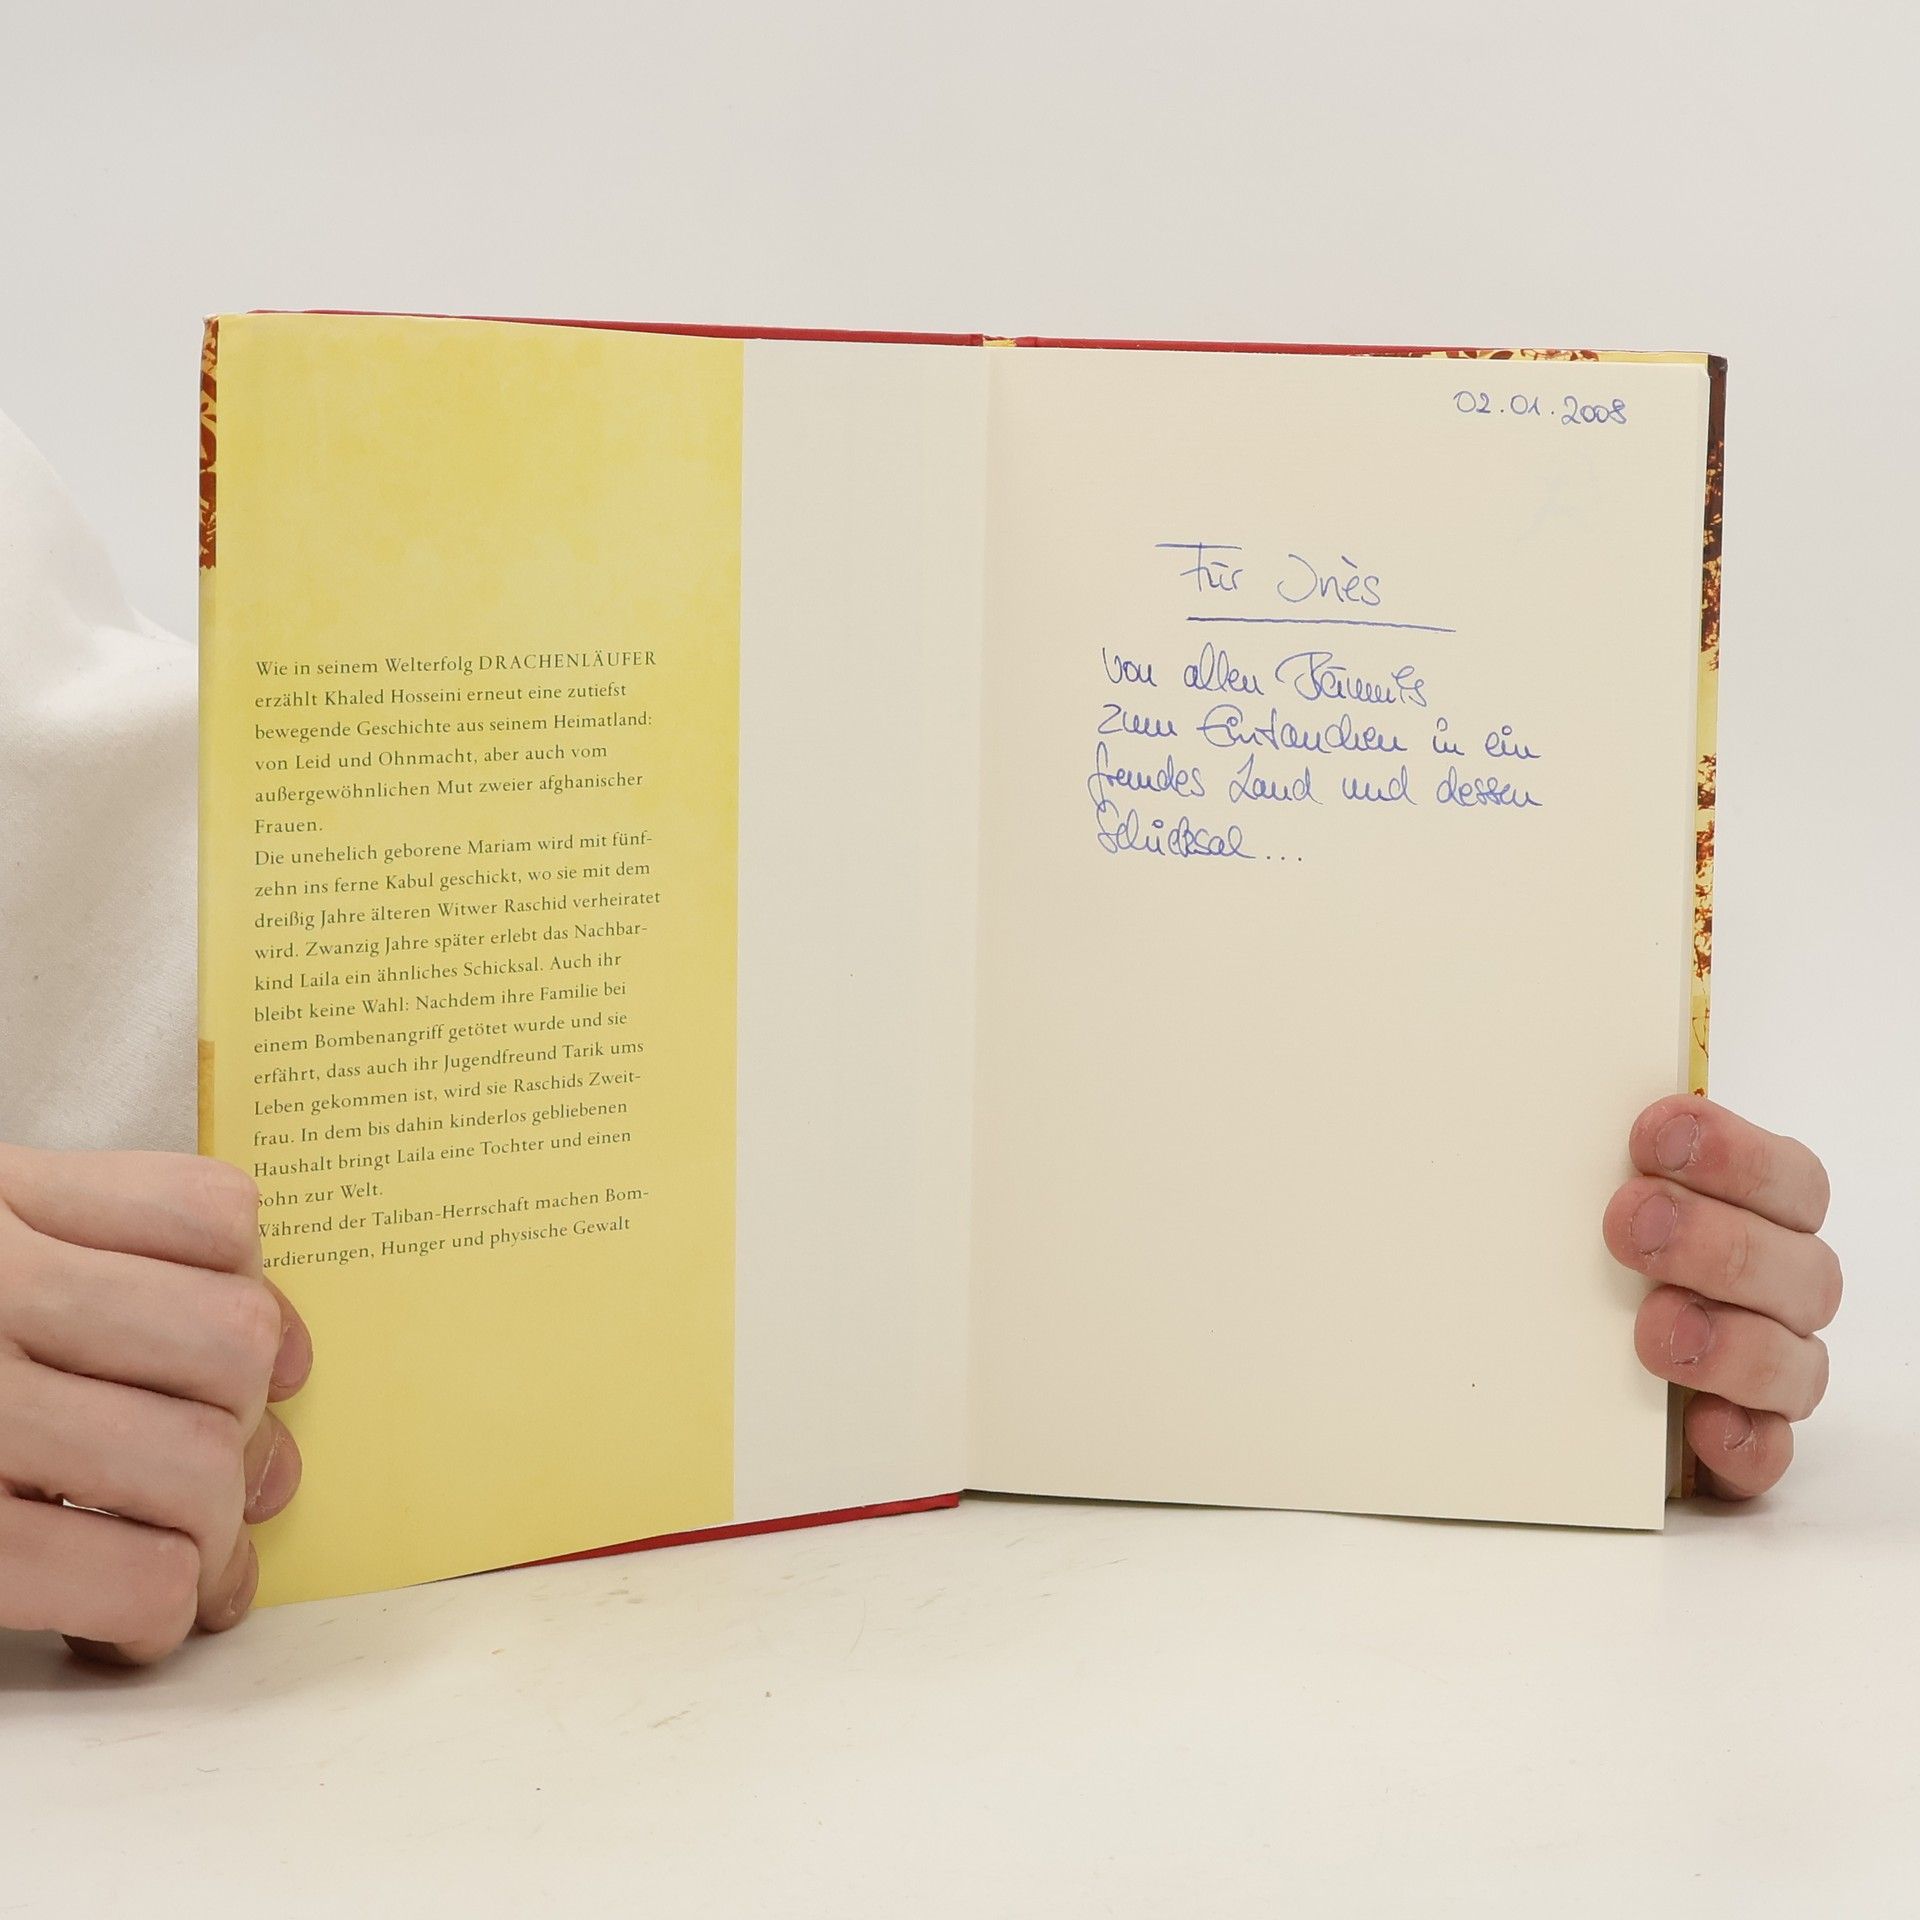 Wie in seinem Welterfolg DRACHENLÄUFER
erzählt Khaled Hosseini erneut eine zutiefst
bewegende Geschichte aus seinem Heimatland:
von Leid und Ohnmacht, aber auch vom
außergewöhnlichen Mut zweier afghanischer
Frauen.
Die unehelich geborene Mariam wird mit fünf-
zehn ins ferne Kabul geschickt, wo sie mit dem
dreißig Jahre älteren Witwer Raschid verheiratet
wird. Zwanzig Jahre später erlebt das Nachbar-
kind Laila ein ähnliches Schicksal. Auch ihr
bleibt keine Wahl: Nachdem ihre Familie bei
einem Bombenangriff getötet wurde und sie
erfährt, dass auch ihr Jugendfreund Tarik ums
Leben gekommen ist, wird sie Raschids Zweit-
frau. In dem bis dahin kinderlos gebliebenen
Haushalt bringt Laila eine Tochter und einen
Sohn zur Welt.
Während der Taliban-Herrschaft machen Bom-
ardierungen, Hunger und physische Gewalt
02.01.2008
Für Inès
von allen
zum Eintauchen in ein
fremdes Land und dessen
Schicksal...